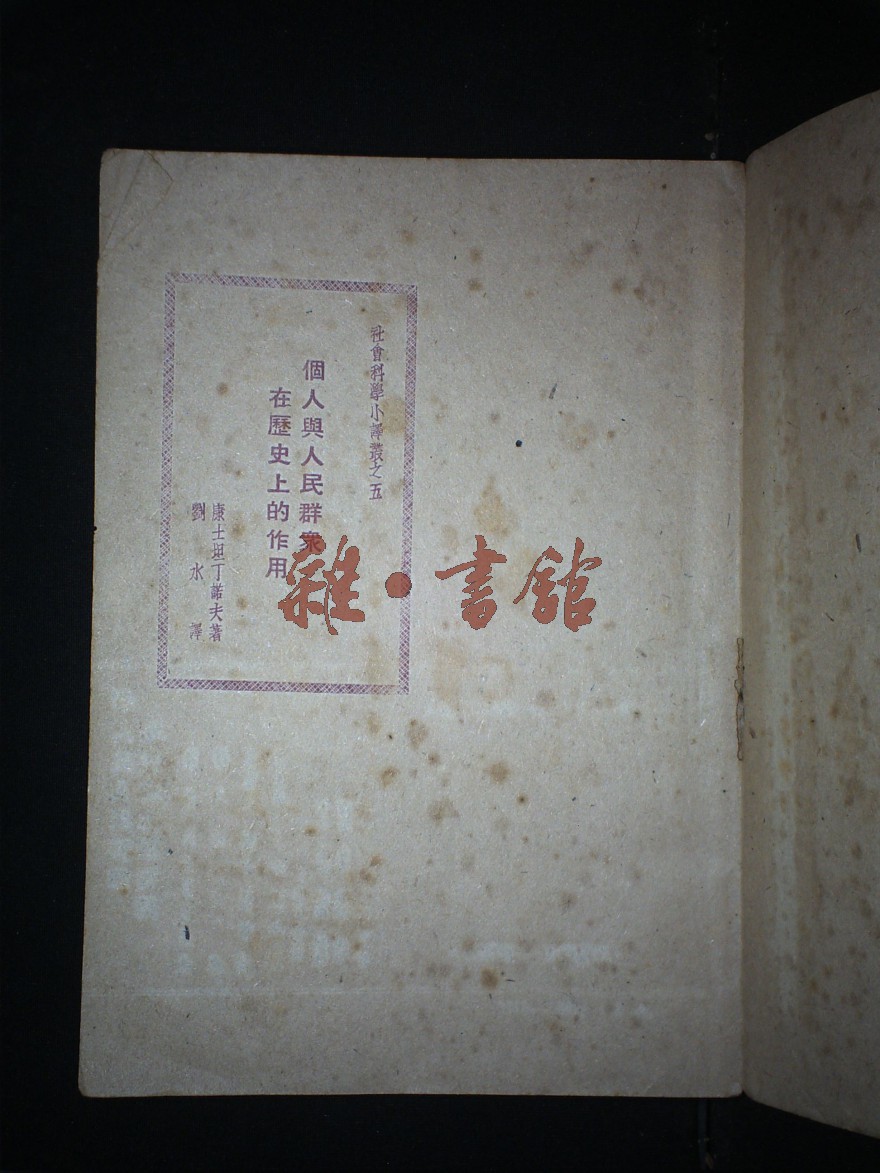 社會科學小譯叢之五
個人與人民群衆
在歷史上的作用
康士坦丁諾夫著
劉水譯
雜·書館